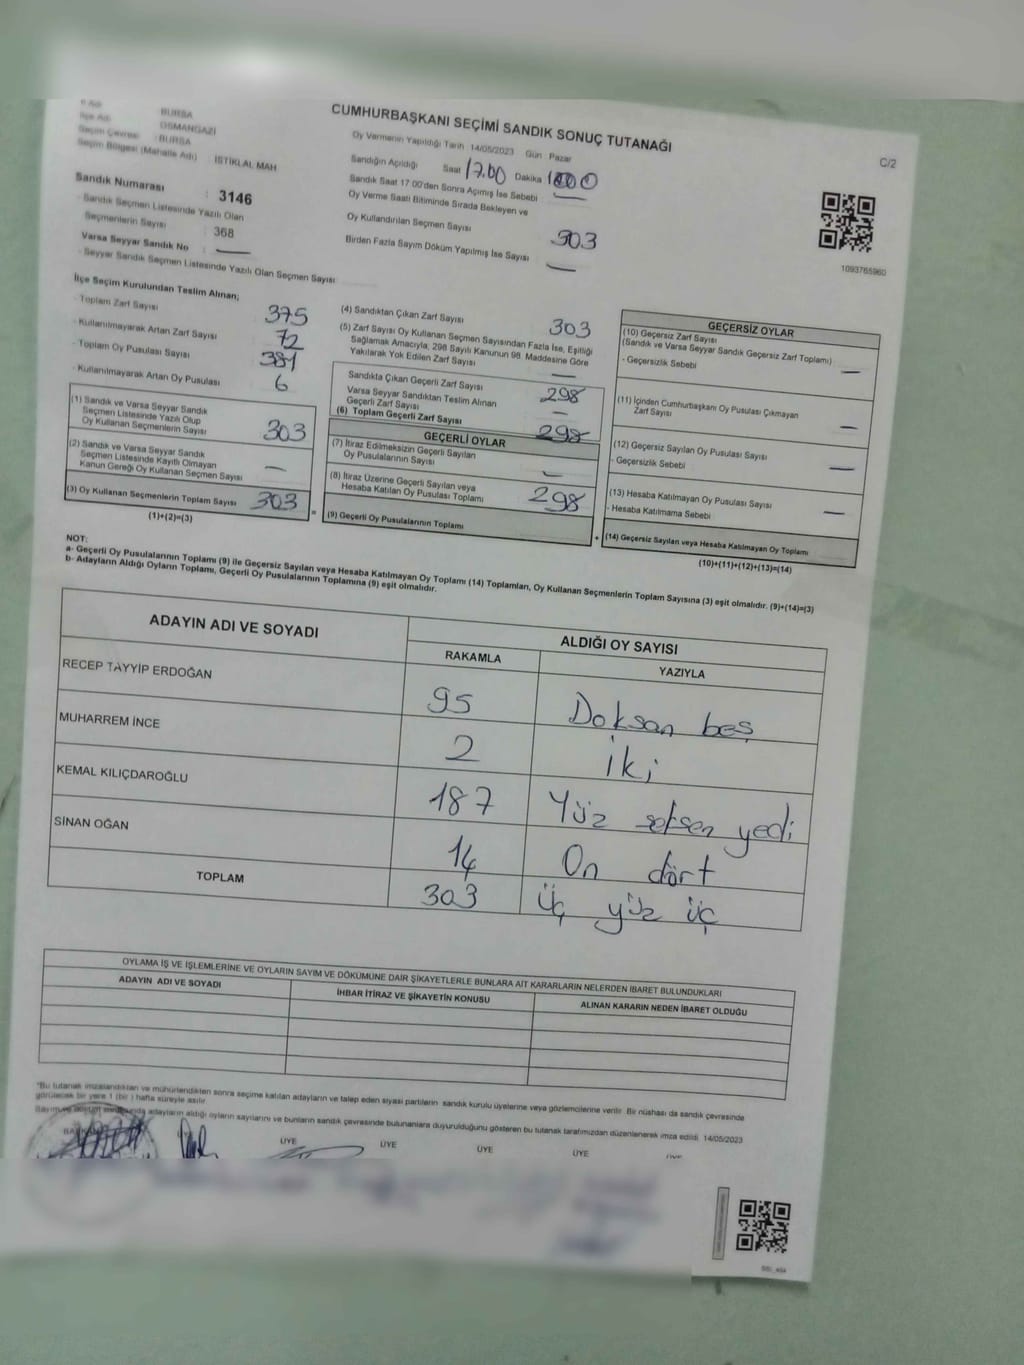 CUMHURBAŞKANI SEÇİMİ SANDIK SONUÇ TUTANAĞI
C/2
İl Adı BURSA
İlçe Adı OSMANGAZİ
Seçim Çevresi : BURSA
Seçim Bölgesi (Mahalle Adı) : İSTİKLAL MAH
Sandık Numarası : 3146
- Sandık Seçmen Listesinde Yazılı Olan
Seçmenlerin Sayısı : 368
Varsa Seyyar Sandık No : —
- Seyyar Sandık Seçmen Listesinde Yazılı Olan Seçmen Sayısı
Oy Vermenin Yapıldığı Tarih : 14/05/2023 Gün : Pazar
Sandığın Açıldığı Saat 17.00 Dakika
Sandık Saat 17.00'den Sonra Açımış İse Sebebi —
Oy Verme Saati Bitiminde Sırada Bekleyen ve
Oy Kullandırılan Seçmen Sayısı 303
Birden Fazla Sayım Döküm Yapılmış İse Sayısı —
1093765960
İlçe Seçim Kurulundan Teslim Alınan;
- Toplam Zarf Sayısı 375
- Kullanılmayarak Artan Zarf Sayısı 72
- Toplam Oy Pusulası Sayısı
- Kullanılmayarak Artan Oy Pusulası 6
(1) Sandık ve Varsa Seyyar Sandık
Seçmen Listesinde Yazılı Olup
Oy Kullanan Seçmenlerin Sayısı 303
(2) Sandık ve Varsa Seyyar Sandık
Seçmen Listesinde Kayıtlı Olmayan
Kanun Gereği Oy Kullanan Seçmen Sayısı —
(3) Oy Kullanan Seçmenlerin Toplam Sayısı 303
(1)+(2)=(3)
=
(4) Sandıktan Çıkan Zarf Sayısı 303
(5) Zarf Sayısı Oy Kullanan Seçmen Sayısından Fazla İse, Eşitliği
Sağlamak Amacıyla; 298 Sayılı Kanunun 98. Maddesine Göre
Yakılarak Yok Edilen Zarf Sayısı —
Sandıkta Çıkan Geçerli Zarf Sayısı 298
Varsa Seyyar Sandıktan Teslim Alınan
Geçerli Zarf Sayısı —
(6) Toplam Geçerli Zarf Sayısı 298
GEÇERLİ OYLAR
(7) İtiraz Edilmeksizin Geçerli Sayılan
Oy Pusulalarının Sayısı —
(8) İtiraz Üzerine Geçerli Sayılan veya
Hesaba Katılan Oy Pusulası Toplamı 298
(9) Geçerli Oy Pusulalarının Toplamı
+
GEÇERSİZ OYLAR
(10) Geçersiz Zarf Sayısı
(Sandık ve Varsa Seyyar Sandık Geçersiz Zarf Toplamı)
- Geçersizlik Sebebi —
(11) İçinden Cumhurbaşkanı Oy Pusulası Çıkmayan
Zarf Sayısı —
(12) Geçersiz Sayılan Oy Pusulası Sayısı
- Geçersizlik Sebebi —
(13) Hesaba Katılmayan Oy Pusulası Sayısı
- Hesaba Katılmama Sebebi —
(14) Geçersiz Sayılan veya Hesaba Katılmayan Oy Toplamı
(10)+(11)+(12)+(13)=(14)
NOT:
a- Geçerli Oy Pusulalarının Toplamı (9) ile Geçersiz Sayılan veya Hesaba Katılmayan Oy Toplamı (14) Toplamları, Oy Kullanan Seçmenlerin Toplam Sayısına (3) eşit olmalıdır. (9)+(14)=(3)
b- Adayların Aldığı Oyların Toplamı, Geçerli Oy Pusulalarının Toplamına (9) eşit olmalıdır.
ADAYIN ADI VE SOYADI
ALDIĞI OY SAYISI
RAKAMLA YAZIYLA
RECEP TAYYİP ERDOĞAN 95 Doksan beş
MUHARREM İNCE 2 iki
KEMAL KILIÇDAROĞLU 187 Yüz seksen yedi
SİNAN OĞAN 14 On dört
TOPLAM 303 Üç yüz üç
OYLAMA İŞ VE İŞLEMLERİNE VE OYLARIN SAYIM VE DÖKÜMÜNE DAİR ŞİKAYETLERLE BUNLARA AİT KARARLARIN NELERDEN İBARET BULUNDUKLARI
ADAYIN ADI VE SOYADI İHBAR İTİRAZ VE ŞİKAYETİN KONUSU ALINAN KARARIN NEDEN İBARET OLDUĞU
*Bu tutanak imzalandıktan ve mühürlendikten sonra seçime katılan adayların ve talep eden siyasi partilerin sandık kurulu üyelerine veya gözlemcilerine verilir. Bir nüshası da sandık çevresinde
görülecek bir yere 1 (bir) hafta süreyle asılır.
Sayım ve döküm sonucunda adayların aldığı oyların sayılarını ve bunların sandık çevresinde bulunanlara duyurulduğunu gösteren bu tutanak tarafımızdan düzenlenerek imza edildi. 14/05/2023
ÜYE ÜYE ÜYE ÜYE ÜYE